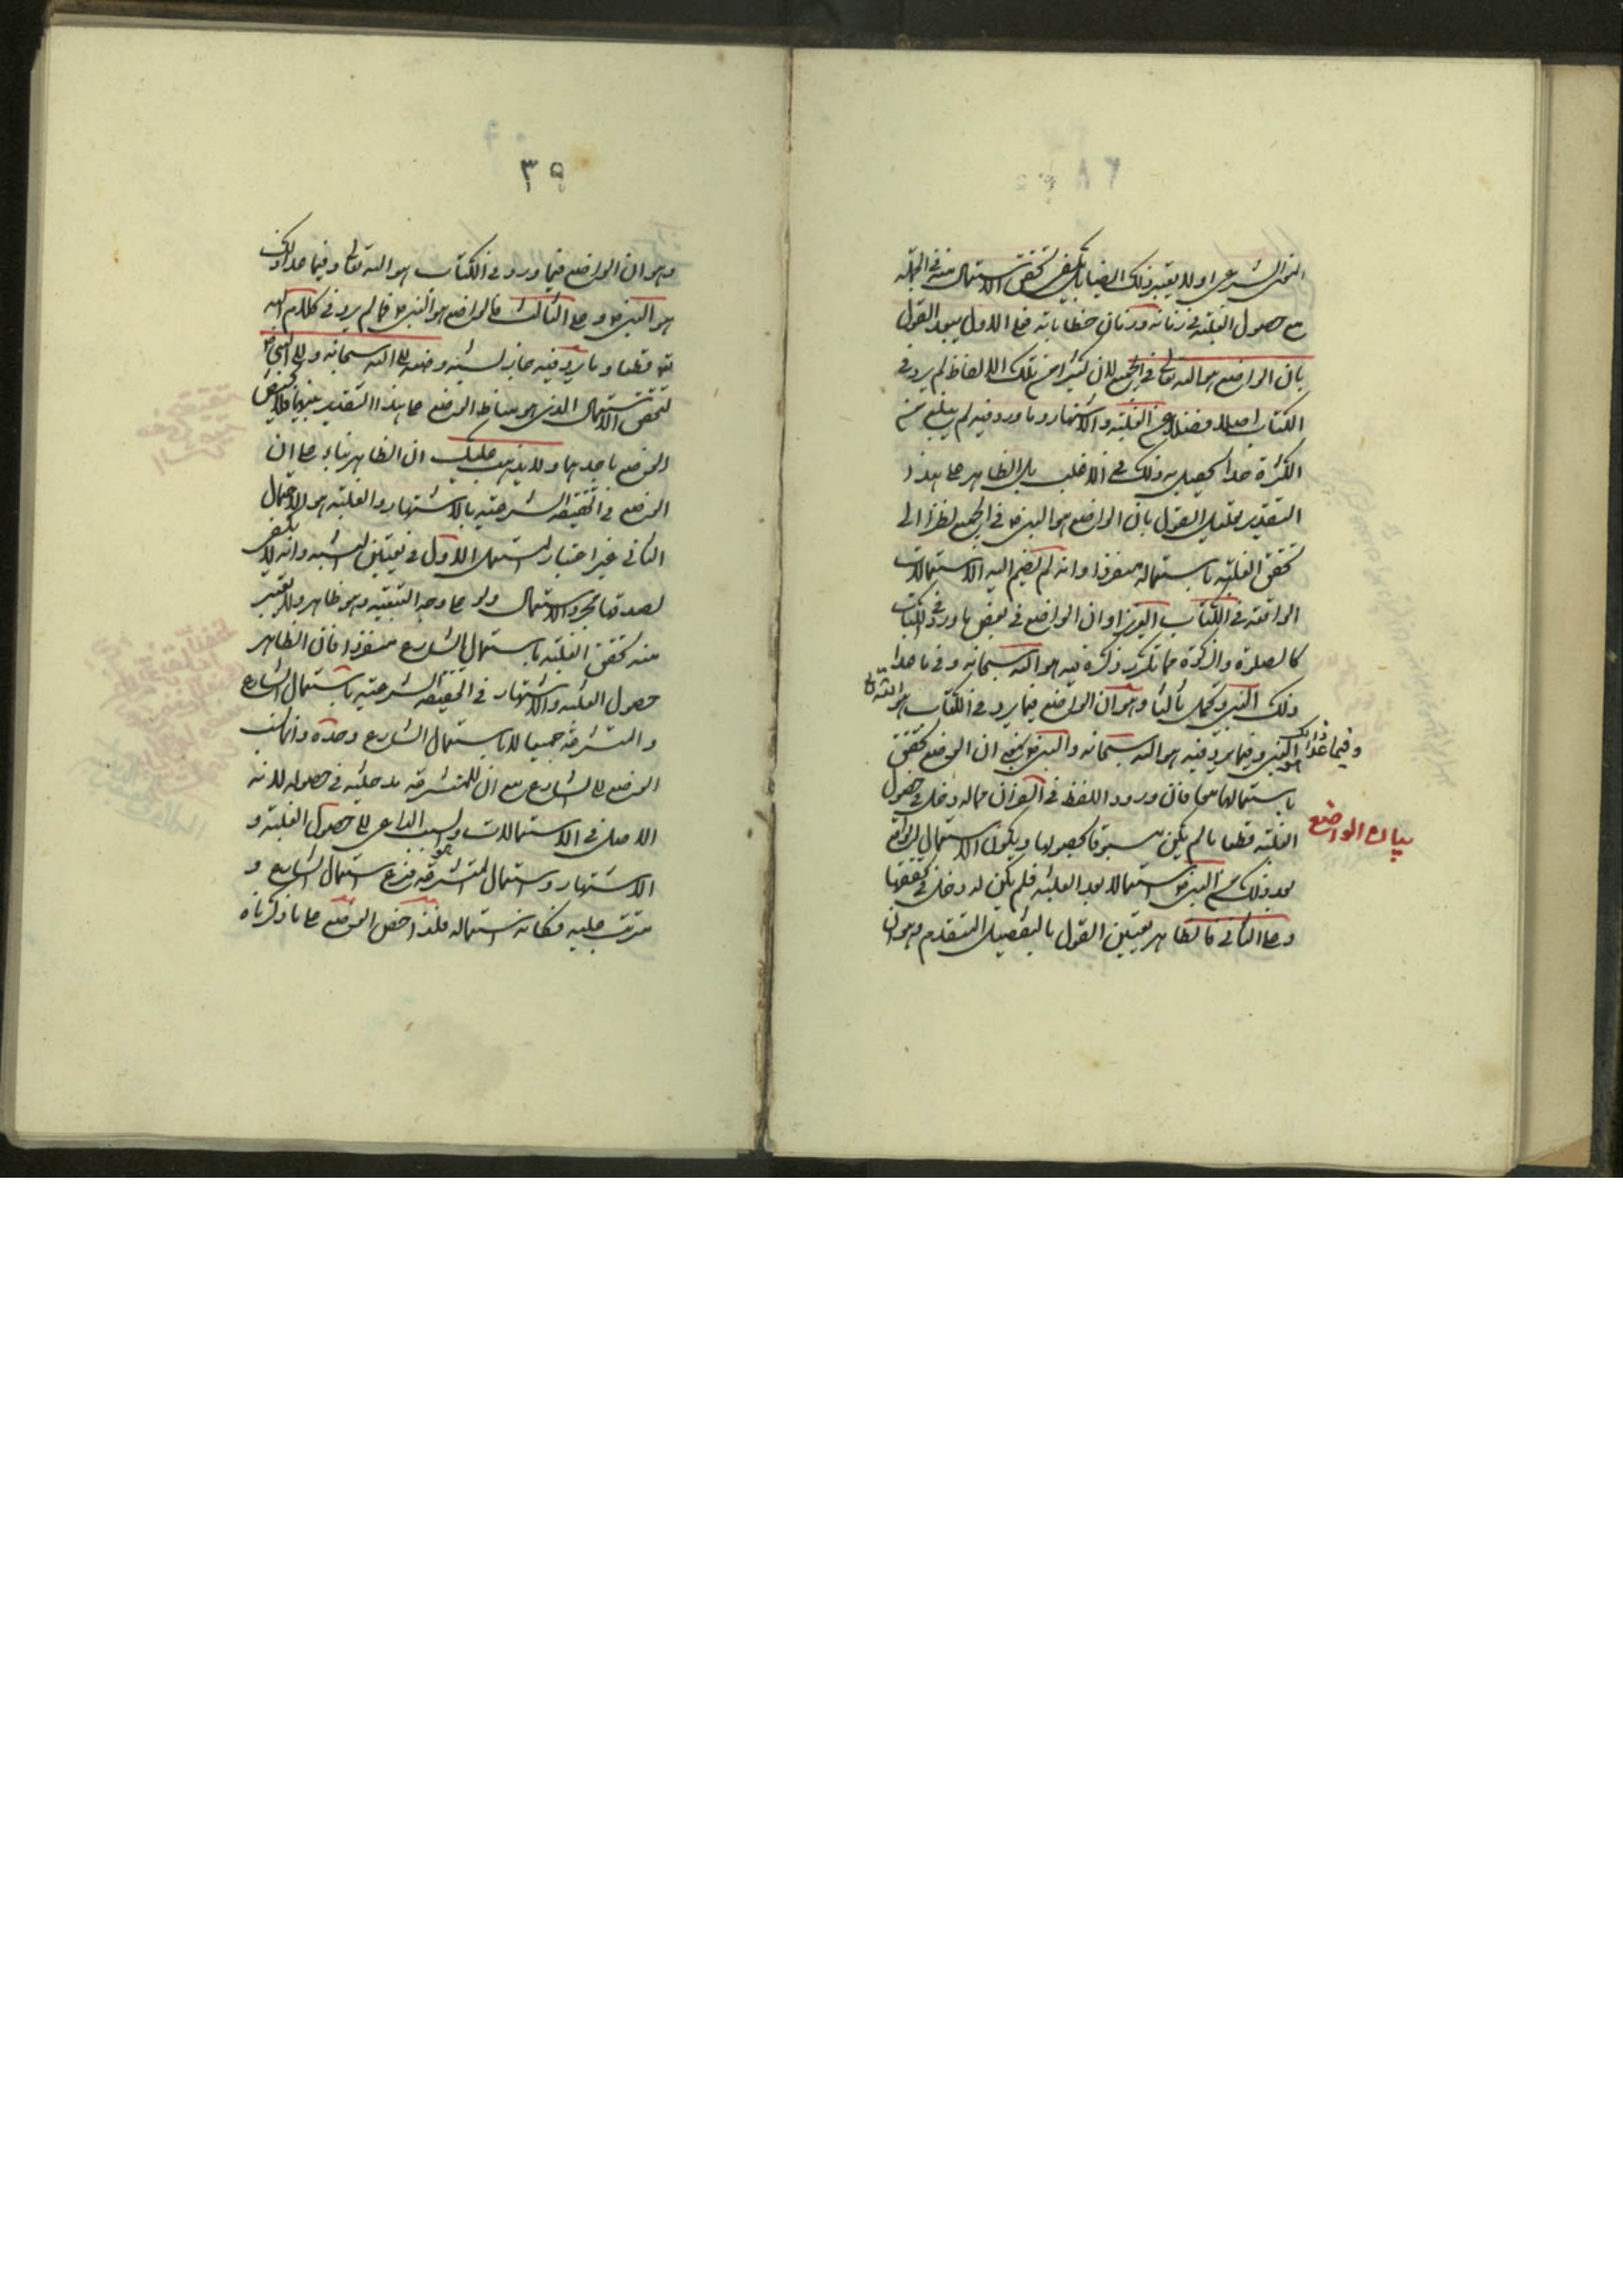 النقل الشرعي او لا يعتبر ذلك ايضا بل يكفي تحقق الاستعمال منه في الجملة
مع حصول الغلبة في زمانه وزمان خطاباته فعلى الاول يبعد القول
بان الواضع هو الله تعالى في الجميع لان كثيرا من تلك الالفاظ لم يرد في
الكتاب اصلا فضلا عن الغلبة والاشتهار وما ورد فيه لم يبلغ من
الكثرة حدا يحصل به ذلك في الاغلب بل الظاهر على هذا
التقدير القول بان الواضع هو النبي ص في الجميع نظرا الى
تحقق الغلبة باستعماله منفردا وانه لم يضم اليه الاستعمالات
الواقعة في الكتاب العزيز او ان الواضع في بعض ما ورد في الكتاب
كالصلوة والزكوة مما تكرر ذكره فيه هو الله سبحانه وفي ما عدا
ذلك النبي ويحتمل ثالثا وهو ان الواضع فيما يرد في الكتاب هو الله تعالى
وفيما عدا ذلك النبي وفيما يرد فيه هو الله سبحانه والنبي ص بمعنى ان الوضع تحقق
باستعمالهما معا فان ورود اللفظ في القران مما له دخل في حصول
بيان الواضع
الغلبة قطعا ما لم يكن مسبوقا بحصولها ويكون الاستعمال الواقع
بعد ذلك من النبي ص استعمالا بعد الغلبة فلم يكن له دخل في تحققها
وعلى الثاني فالظاهر تعين القول بالتفصيل المتقدم وهو ان
٣٩
وهو ان الواضع فيما ورد في الكتاب هو الله تعالى وفيما عدا ذلك
هو النبي ص وعلى الثالث فالواضع هو النبي ص فما لم يرد في كلام الله
تعالى قطعا وما يرد فيه جاز نسبة وضعه الى الله سبحانه والى النبي ص
لتحقق الاستعمال الذي هو مناط الوضع على هذا التقدير منهما فلا يختص
الوضع باحدهما ولا يذهب عليك ان الظاهر بناء على ان
الوضع في الحقيقة الشرعية بالاشتهار والغلبة هو الاحتمال
الثاني غير اعتبار المستعمل الاول في تعيين النسبة وانه لا يكفي
لصدقها مجرد الاستعمال ولو على وجه التبعية وهو ظاهر ولا يعتبر
منه تحقق الغلبة باستعمال الشارع منفردا فان الظاهر
حصول الغلبة والاشتهار في الحقيقة الشرعية باستعمال الشارع
والمتشرعة جميعا لا باستعمال الشارع وحده وانما نسب
الوضع الى الشارع مع ان للمتشرعة مدخلية في حصوله لانه
الاصل في الاستعمالات والسبب الداعي الى حصول الغلبة و
الاشتهار واستعمال المتشرعة هو فرع استعمال الشارع و
مترتب عليه فكانه استعماله فلذا خص الوضع على ما ذكرناه